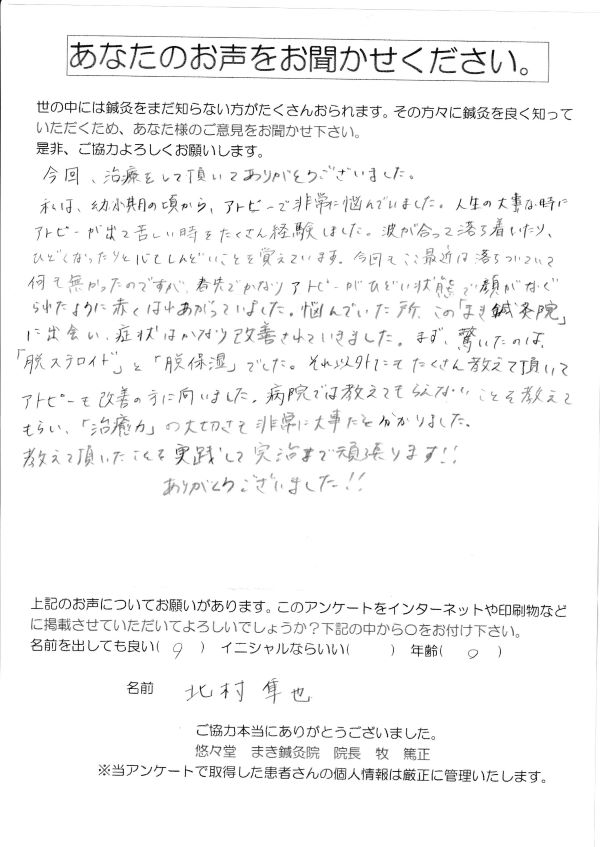 あなたのお声をお聞かせください。
世の中には鍼灸をまだ知らない方がたくさんおられます。その方々に鍼灸を良く知って
いただくため、あなた様のご意見をお聞かせ下さい。
是非、ご協力よろしくお願いします。
今回、治療をして頂いてありがとうございました。
私は、幼小期の頃から、アトピーで非常に悩んでいました。人生の大事な時に
アトピーが出て苦しい時をたくさん経験しました。波が合って落ち着いたり、
ひどくなったりとしてしんどいことを覚えています。今回もここ最近は落ちついていて
何も無かったのですが、春先でかなりアトピーがひどい状態で顔がなぐ
られたように赤くはれあがっていました。悩んでいた所、この「まき鍼灸院」
に出会い、症状はかなり改善されていきました。まず、驚いたのは、
「脱ステロイド」と「脱保湿」でした。それ以外にもたくさん教えて頂いて
アトピーも改善の方に向いました。病院では教えてもらえないことを教えて
もらい、「治癒力」の大切さを非常に大事だと分かりました。
教えて頂いたことを実践して完治まで頑張ります!!
ありがとうございました!!
上記のお声についてお願いがあります。このアンケートをインターネットや印刷物など
に掲載させていただいてよろしいでしょうか?下記の中から〇をお付け下さい。
名前を出しても良い( ○ ) イニシャルならいい( ) 年齢( ○ )
名前 北村 隼也
ご協力本当にありがとうございました。
悠々堂 まき鍼灸院 院長 牧 篤正
※当アンケートで取得した患者さんの個人情報は厳正に管理いたします。